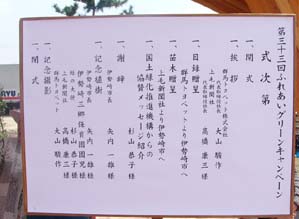 第三十三回ふれあいグリーンキャンペーン
式次第
一、開式
一、挨拶
群馬トヨペット株式会社
代表取締役社長 大山駿作
上毛新聞社
代表取締役社長 高橋康三様
一、目録贈呈
群馬トヨペットより伊勢崎市へ
一、苗木贈呈
上毛新聞社より伊勢崎市へ
一、国土緑化推進機構からの
協賛メッセージ紹介
杉山恭子様
一、謝辞
伊勢崎市長 矢内一雄様
一、記念植樹
伊勢崎市長 矢内一雄様
伊勢崎三郷保育園園児様
緑の大使 杉山恭子様
上毛新聞社 高橋康三様
群馬トヨペット 大山駿作
一、記念撮影
一、閉式